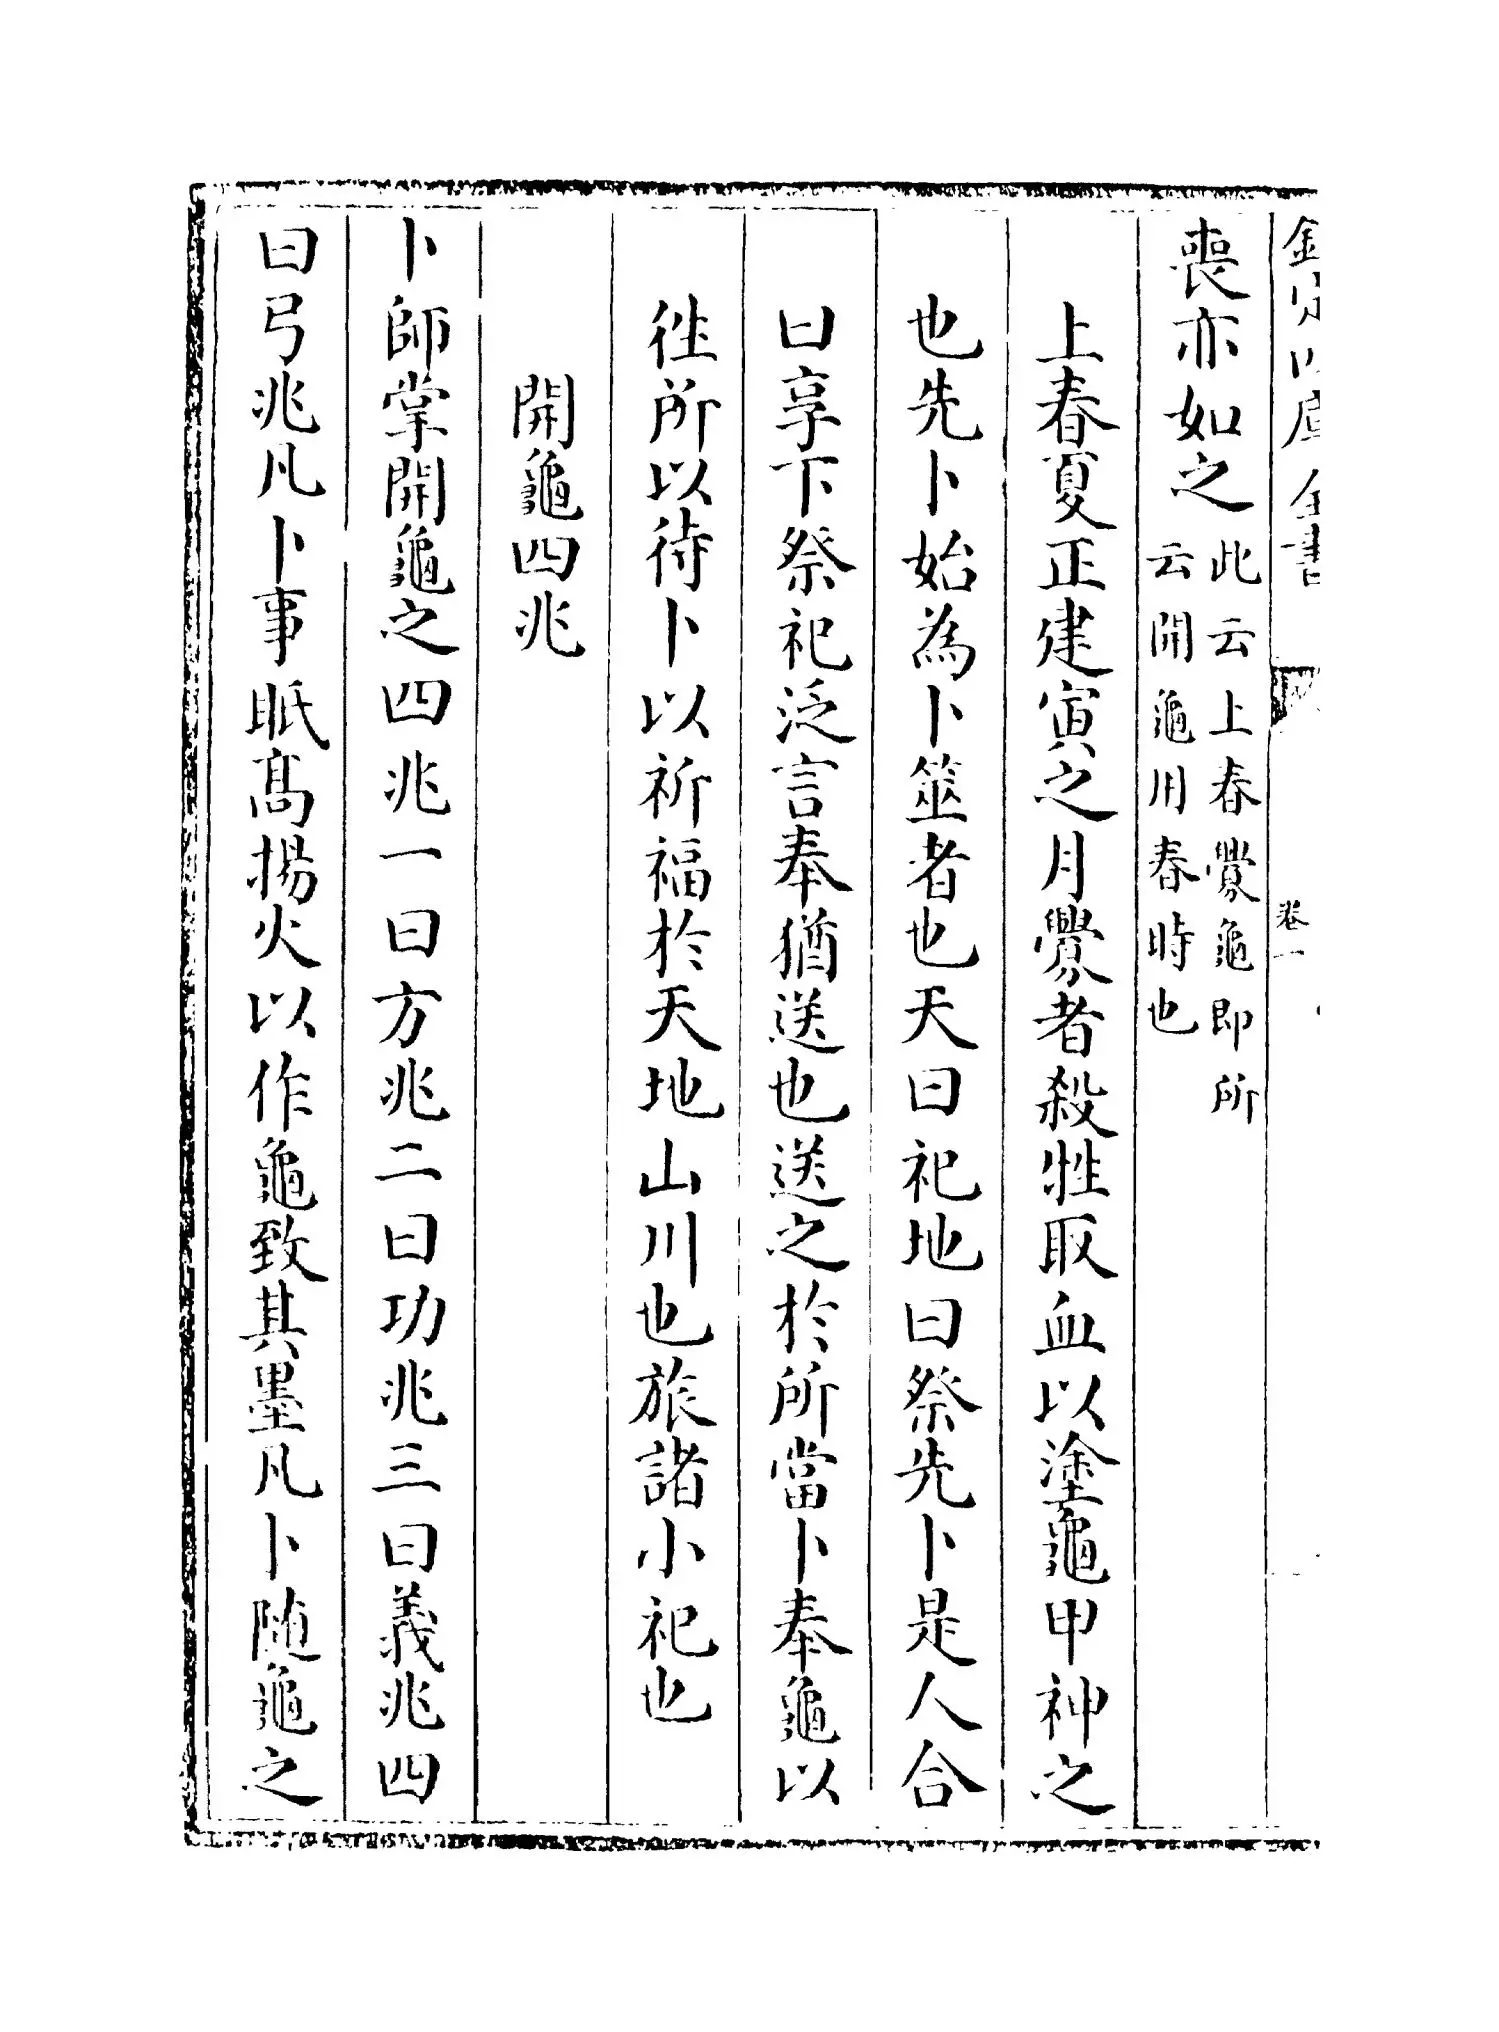 欽定四庫全書
卷一
喪亦如之此云上春釁龜即所
云開龜用春時也
上春夏正建寅之月釁者殺牲取血以塗龜甲神之
也先卜始為卜筮者也天曰祀地曰祭先卜是人合
曰享下祭祀泛言奉猶送也送之於所當卜奉龜以
徃所以待卜以祈福於天地山川也旅諸小祀也
開龜四兆
卜師掌開龜之四兆一曰方兆二曰功兆三曰義兆四
曰弓兆凡卜事眡髙揚火以作龜致其墨凡卜随龜之